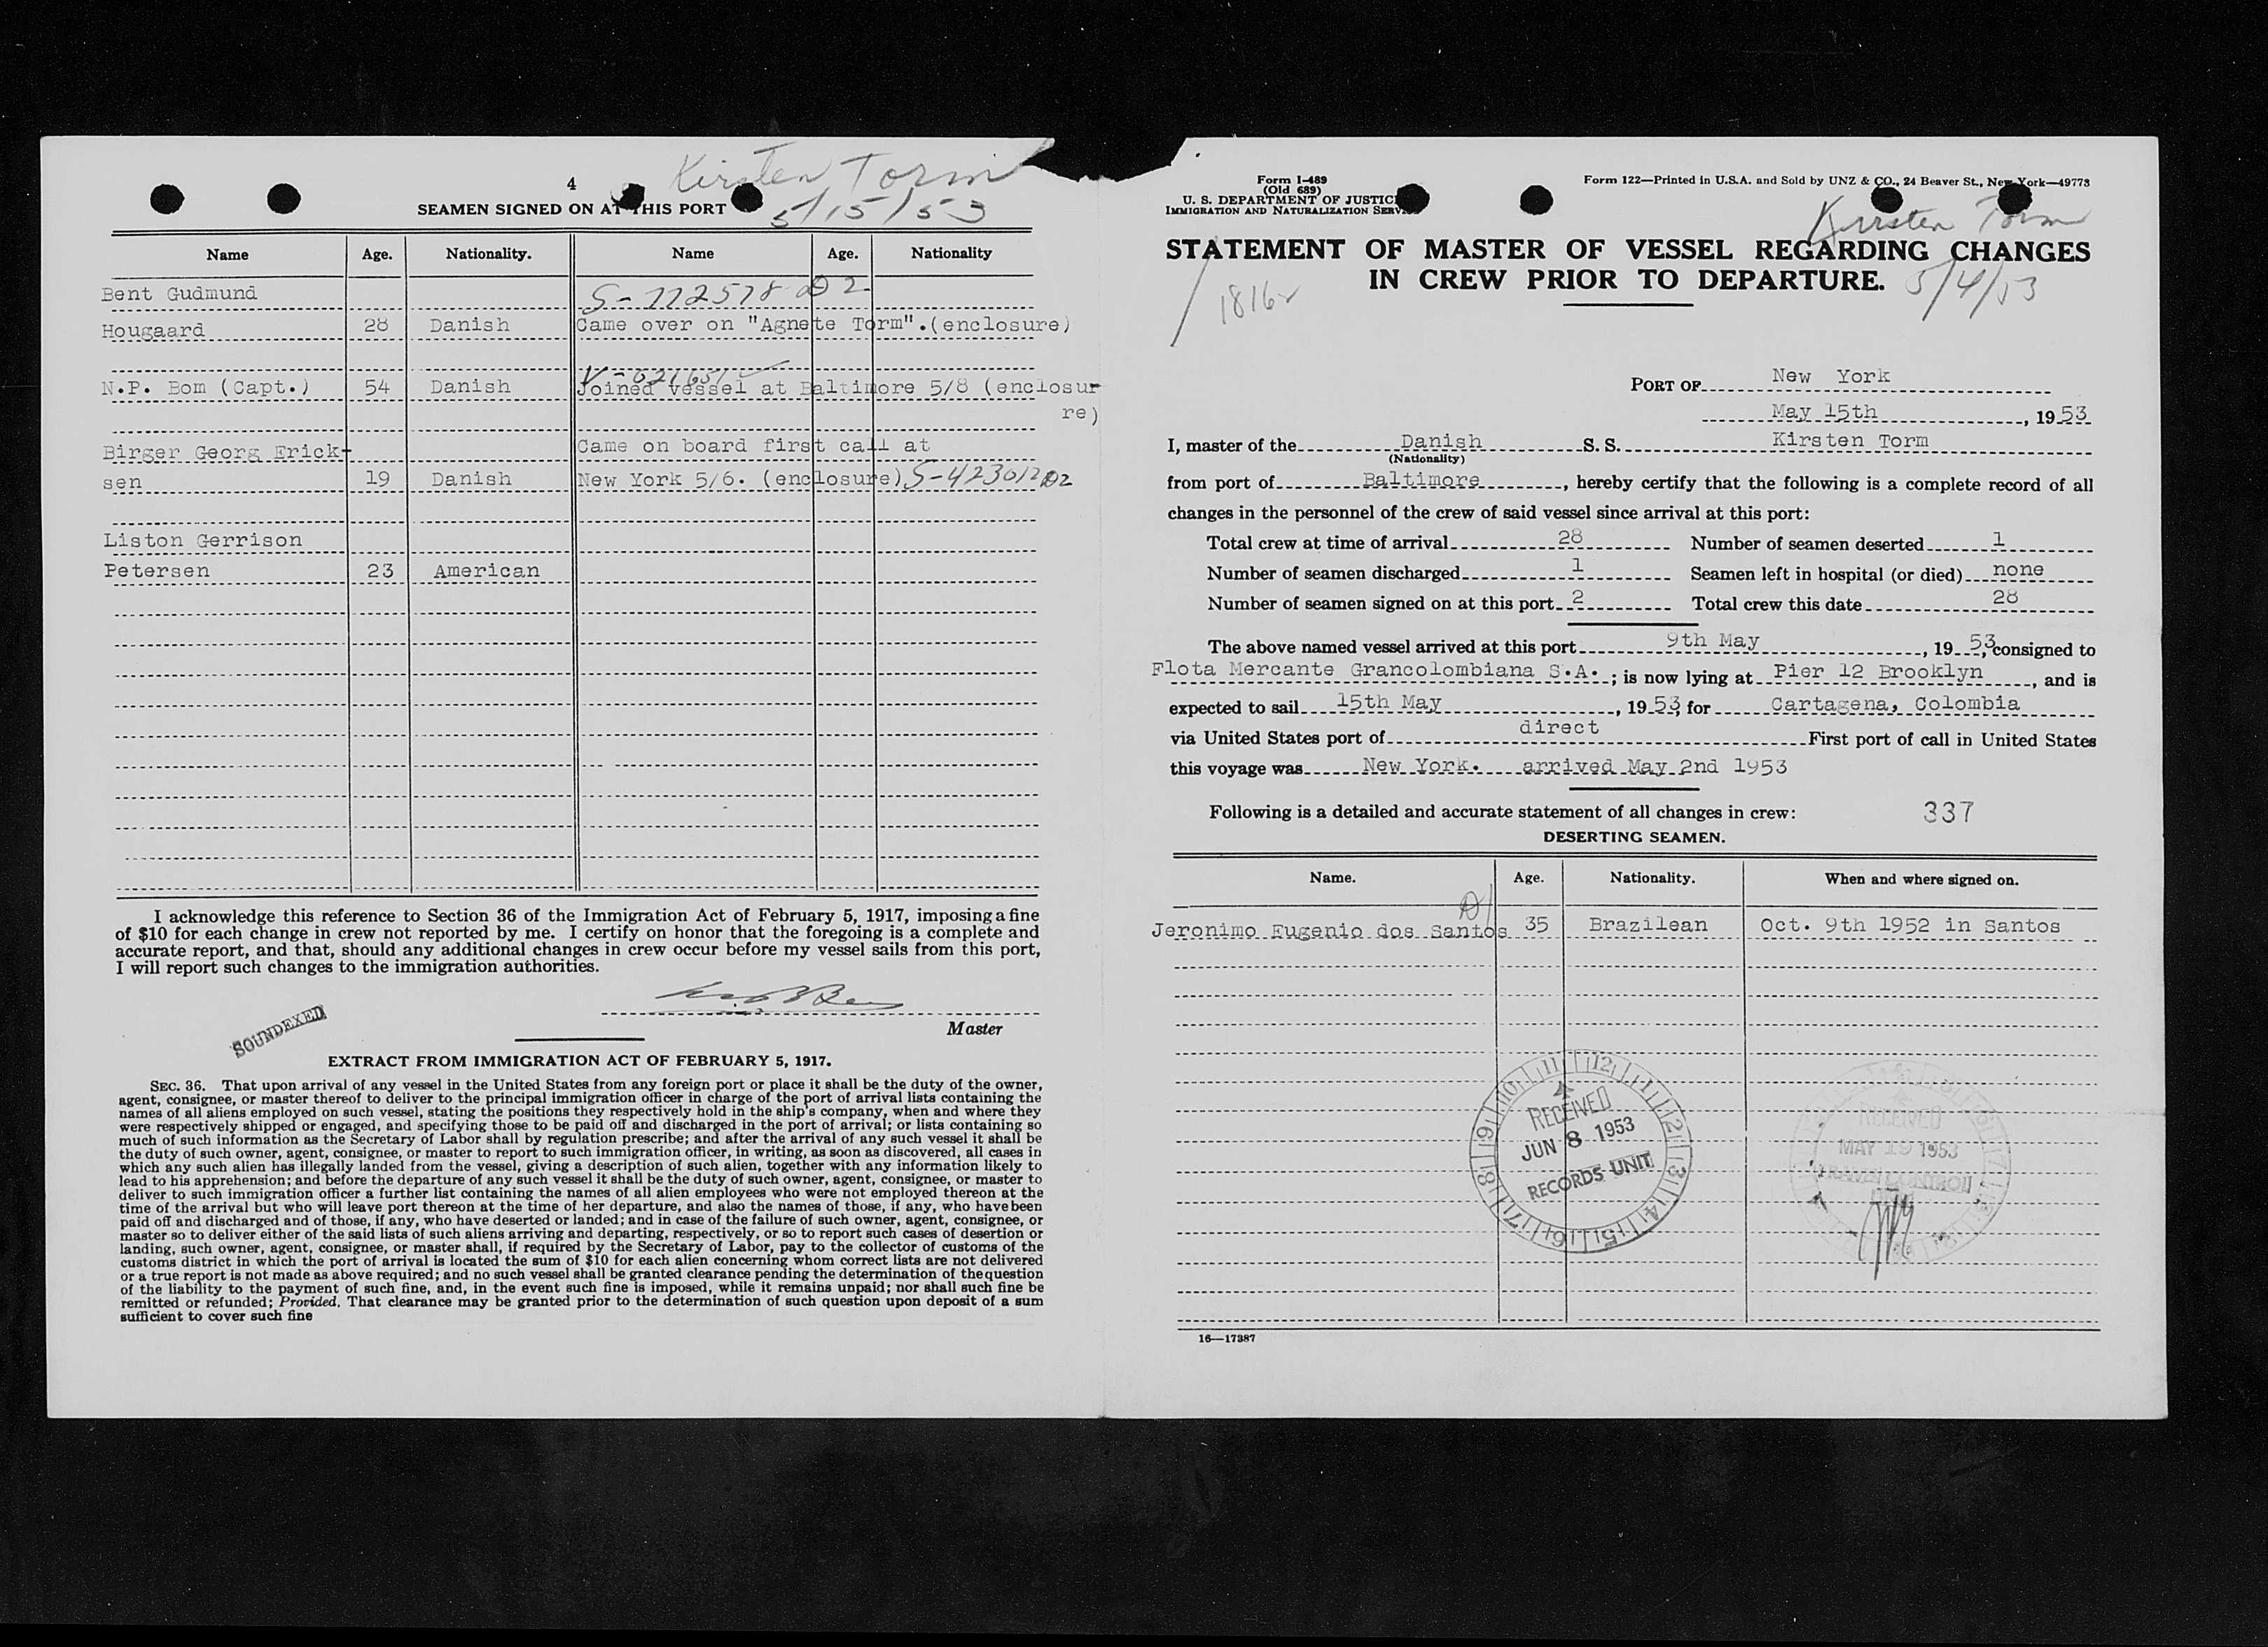 4
Kirsten Torm
SEAMEN SIGNED ON AT THIS PORT
5/15/53
Name Age. Nationality. Name Age. Nationality
Bent Gudmund
Hougaard 28 Danish Came over on "Agnete Torm".(enclosure)
N.P. Bom (Capt.) 54 Danish Joined vessel at Baltimore 5/8 (enclosur
re)
Birger Georg Erick- Came on board first call at
sen 19 Danish New York 5/6. (enclosure)
Liston Gerrison
Petersen 23 American
I acknowledge this reference to Section 36 of the Immigration Act of February 5, 1917, imposing a fine
of $10 for each change in crew not reported by me. I certify on honor that the foregoing is a complete and
accurate report, and that, should any additional changes in crew occur before my vessel sails from this port,
I will report such changes to the immigration authorities.
Master
SOUNDEXED
EXTRACT FROM IMMIGRATION ACT OF FEBRUARY 5, 1917.
SEC. 36. That upon arrival of any vessel in the United States from any foreign port or place it shall be the duty of the owner,
agent, consignee, or master thereof to deliver to the principal immigration officer in charge of the port of arrival lists containing the
names of all aliens employed on such vessel, stating the positions they respectively hold in the ship's company, when and where they
were respectively shipped or engaged, and specifying those to be paid off and discharged in the port of arrival; or lists containing so
much of such information as the Secretary of Labor shall by regulation prescribe; and after the arrival of any such vessel it shall be
the duty of such owner, agent, consignee, or master to report to such immigration officer, in writing, as soon as discovered, all cases in
which any such alien has illegally landed from the vessel, giving a description of such alien, together with any information likely to
lead to his apprehension; and before the departure of any such vessel it shall be the duty of such owner, agent, consignee, or master to
deliver to such immigration officer a further list containing the names of all alien employees who were not employed thereon at the
time of the arrival but who will leave port thereon at the time of her departure, and also the names of those, if any, who have been
paid off and discharged and of those, if any, who have deserted or landed; and in case of the failure of such owner, agent, consignee, or
master so to deliver either of the said lists of such aliens arriving and departing, respectively, or so to report such cases of desertion or
landing, such owner, agent, consignee, or master shall, if required by the Secretary of Labor, pay to the collector of customs of the
customs district in which the port of arrival is located the sum of $10 for each alien concerning whom correct lists are not delivered
or a true report is not made as above required; and no such vessel shall be granted clearance pending the determination of the question
of the liability to the payment of such fine, and, in the event such fine is imposed, while it remains unpaid; nor shall such fine be
remitted or refunded; Provided, That clearance may be granted prior to the determination of such question upon deposit of a sum
sufficient to cover such fine
Form I-489
(Old 689)
U. S. DEPARTMENT OF JUSTICE
IMMIGRATION AND NATURALIZATION SERVICE
Form 122—Printed in U.S.A. and Sold by UNZ & CO., 24 Beaver St., New York—49773
Kirsten Torm
STATEMENT OF MASTER OF VESSEL REGARDING CHANGES
IN CREW PRIOR TO DEPARTURE.
5/4/53
1816
PORT OF New York
May 15th, 1953
I, master of the Danish S. S. Kirsten Torm
(Nationality)
from port of Baltimore, hereby certify that the following is a complete record of all
changes in the personnel of the crew of said vessel since arrival at this port:
Total crew at time of arrival 28 Number of seamen deserted 1
Number of seamen discharged 1 Seamen left in hospital (or died) none
Number of seamen signed on at this port 2 Total crew this date 28
The above named vessel arrived at this port 9th May, 1953, consigned to
Flota Mercante Grancolombiana S.A. ; is now lying at Pier 12 Brooklyn, and is
expected to sail 15th May, 1953, for Cartagena, Colombia
via United States port of direct First port of call in United States
this voyage was New York. arrived May 2nd 1953
Following is a detailed and accurate statement of all changes in crew: 337
DESERTING SEAMEN.
Name. Age. Nationality. When and where signed on.
Jeronimo Eugenio dos Santos 35 Brazilean Oct. 9th 1952 in Santos
RECEIVED
JUN 8 1953
RECORDS UNIT
RECEIVED
MAY 19 1953
16—17387